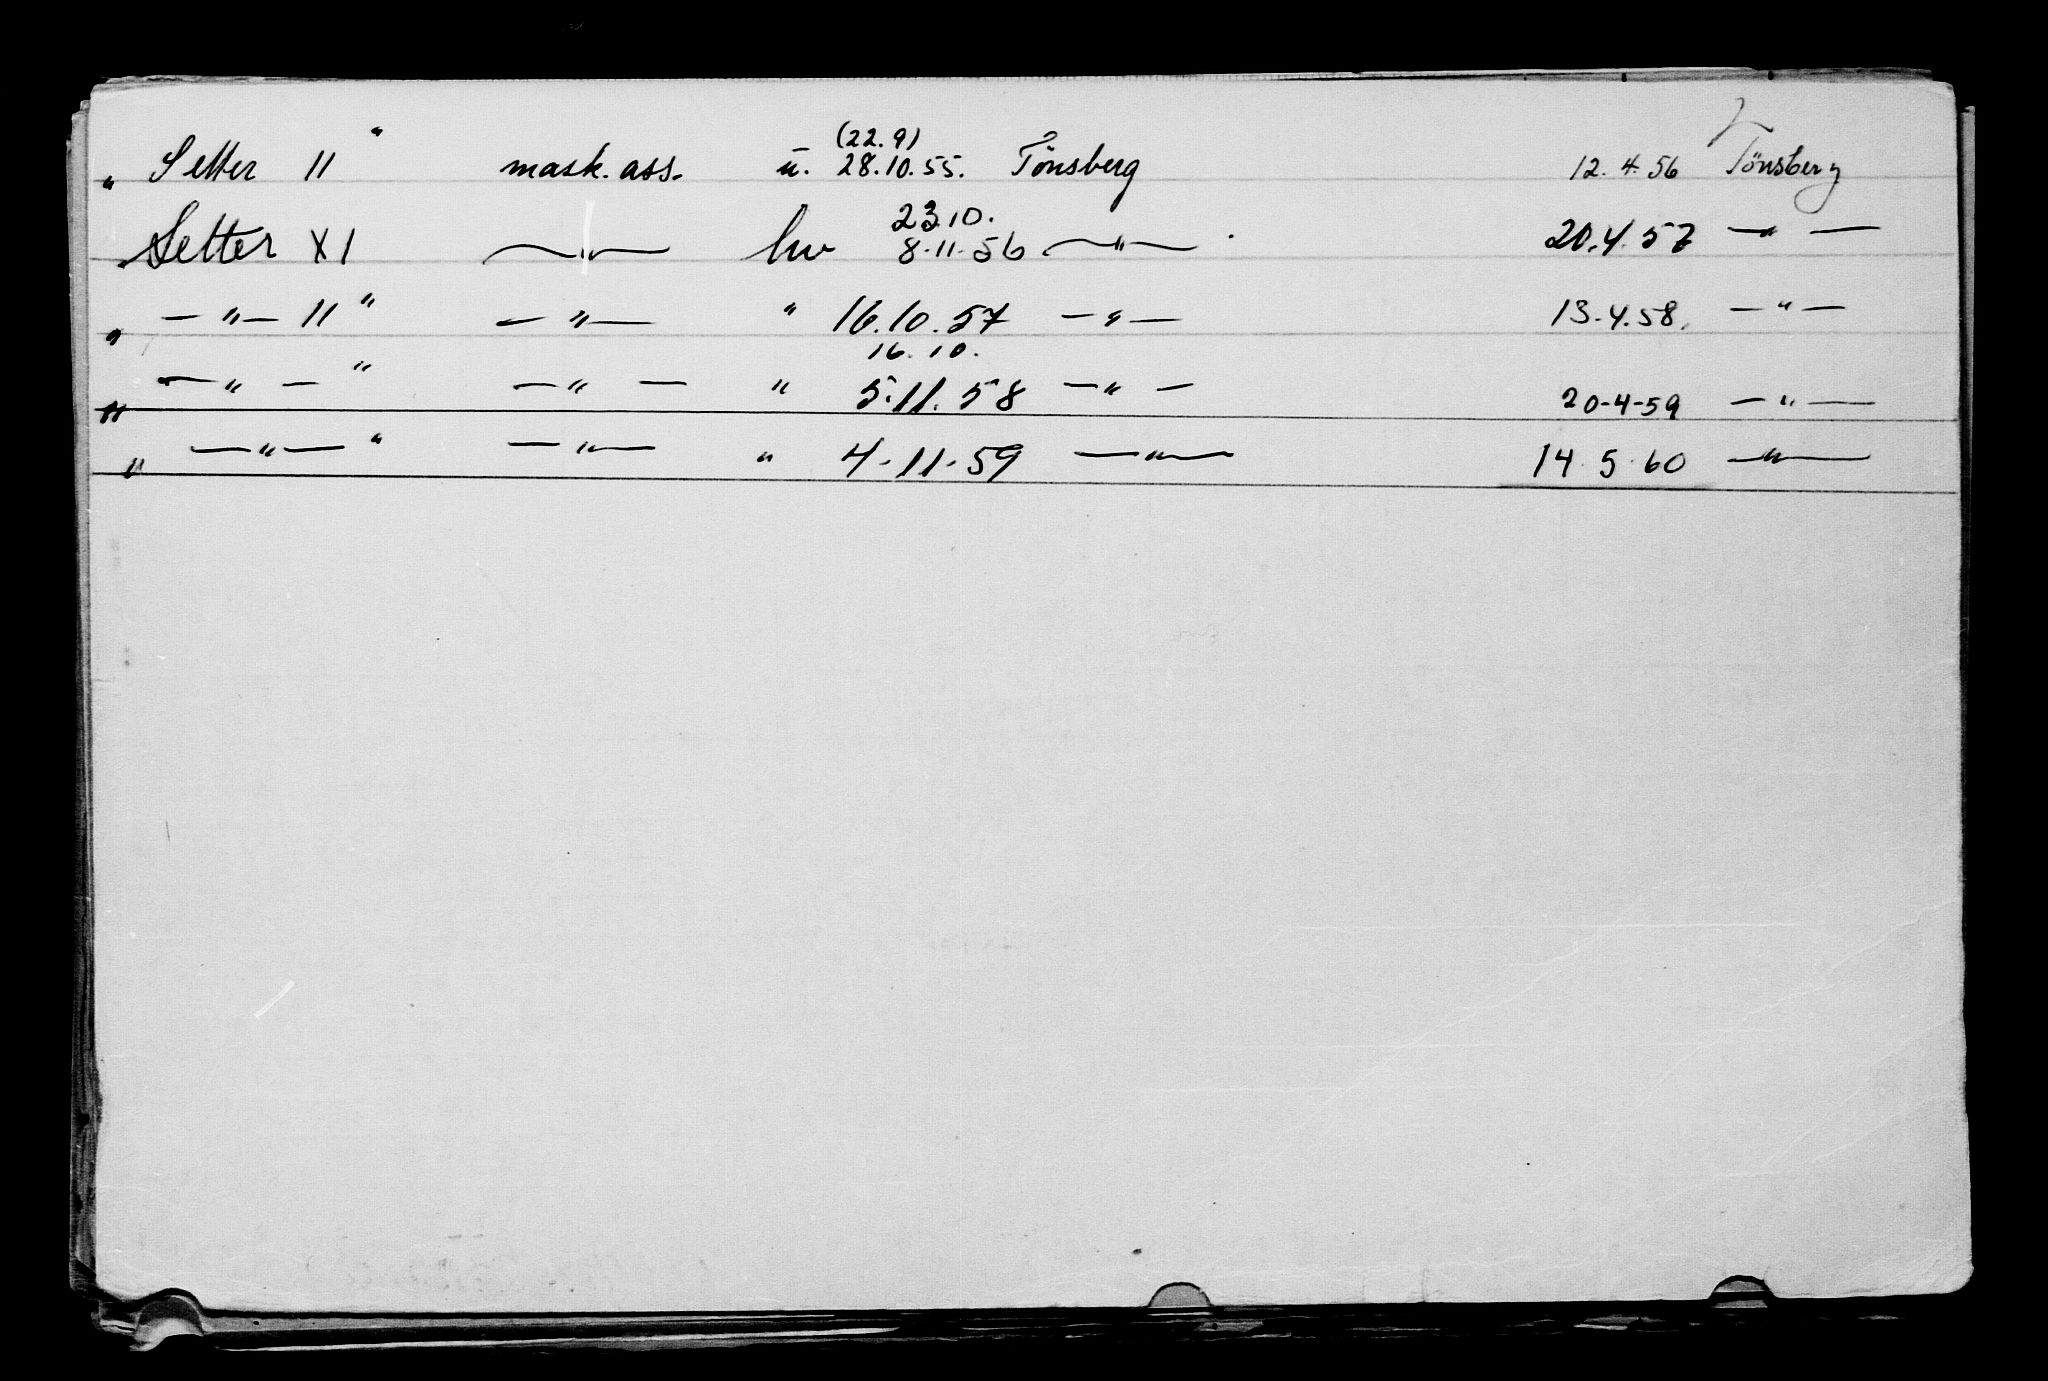 (22.9)
„ Setter 11 " mask. ass. u. 28.10.55. Tönsberg 12.4.56 Tönsberg
23.10.
„ Setter XI —"— hv 8-11-56 —"— 20.4.57 —"—
„ —"— 11 " —"— " 16.10.57 —"— 13-4.58. —"—
16.10.
„ —"— " —"— " 5.11.58 —"— 20-4-59 —"—
„ —"— " —"— " 4-11-59 —"— 14.5.60 —"—